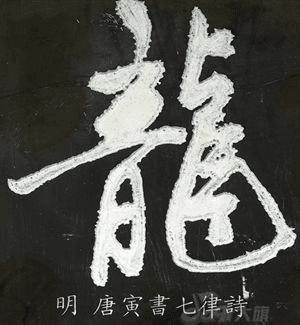 龍
明 唐寅書七律詩